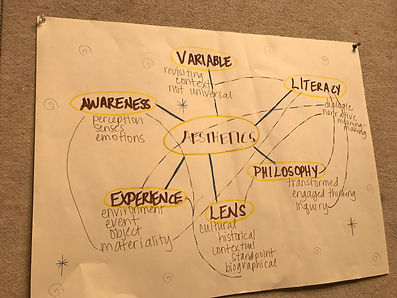 VARIABLE
revisiting
context
not universal
LITERACY
dialogic
narrative
meaning-
making
AWARENESS
perception
senses
emotions
AESTHETICS
PHILOSOPHY
transformed
engaged thinking
inquiry
EXPERIENCE
environment
event
object
materiality
LENS
cultural
historical
contextual
standpoint
biographical